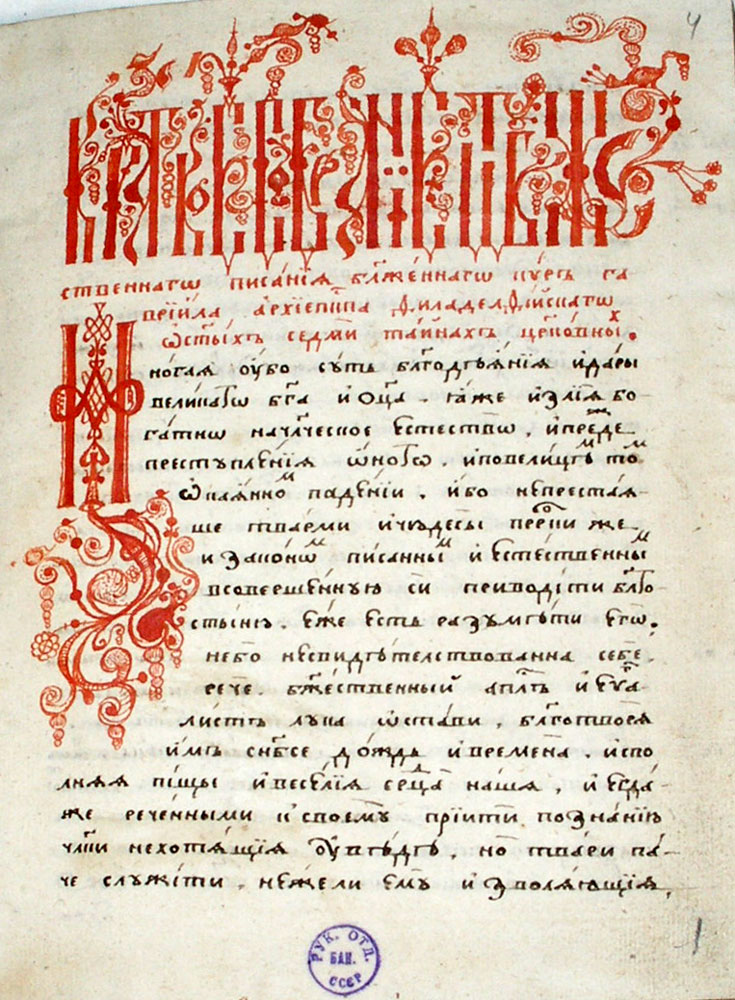 4
ственнагѡ писанїѧ бл҃женнагѡ кѵръ га
врїила архїепⷭ҇кпа филаделфїйскагѡ
ѡ ст҃ыхъ седми тайнахъ цр҃ковныⷯ.
Многая ᲂубо суть бл҃годѣѧнїѧ и дары
великагѡ бг҃а и ѻц҃а. ꙗже изліѧ бо
гатнѡ на чл҃ческое естествѡ, и преⷤде
преступленїѧ ѻногѡ, и повелицѣⷨ тоⷨ
ѻкаѧнноⷨ падении. ибо непрестаѧ
ше тварми и чюдесы пррⷪ҇ки же
и законѡⷨ писанныⷨ и естественныⷨ
в совершенную си приводити бл҃го
стыню. еже есть разумѣти егѡ.
не бо несвидѣтелствованна себе
рече. бж҃ественный апⷭ҇лъ и еѵⷢ҇а
листъ лука ѡстави, благотворѧ
имъ с нб҃се дождь и времена. испо
лнѧѧ пищы и веселїѧ срⷣца наша, и егда
же реченными к своемꙋ прїити познанїю
чл҃цы не хотѧщїѧ ᲂувѣдѣ, но твари па
че служити, нежели емꙋ изволѧющїѧ,
1
РУК. ОТД.
БАН.
СССР